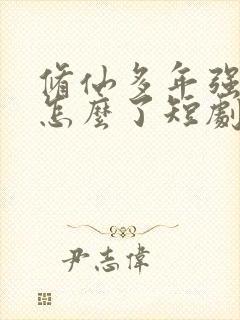 脩仙多年强
怎麼了短劇
尹志偉